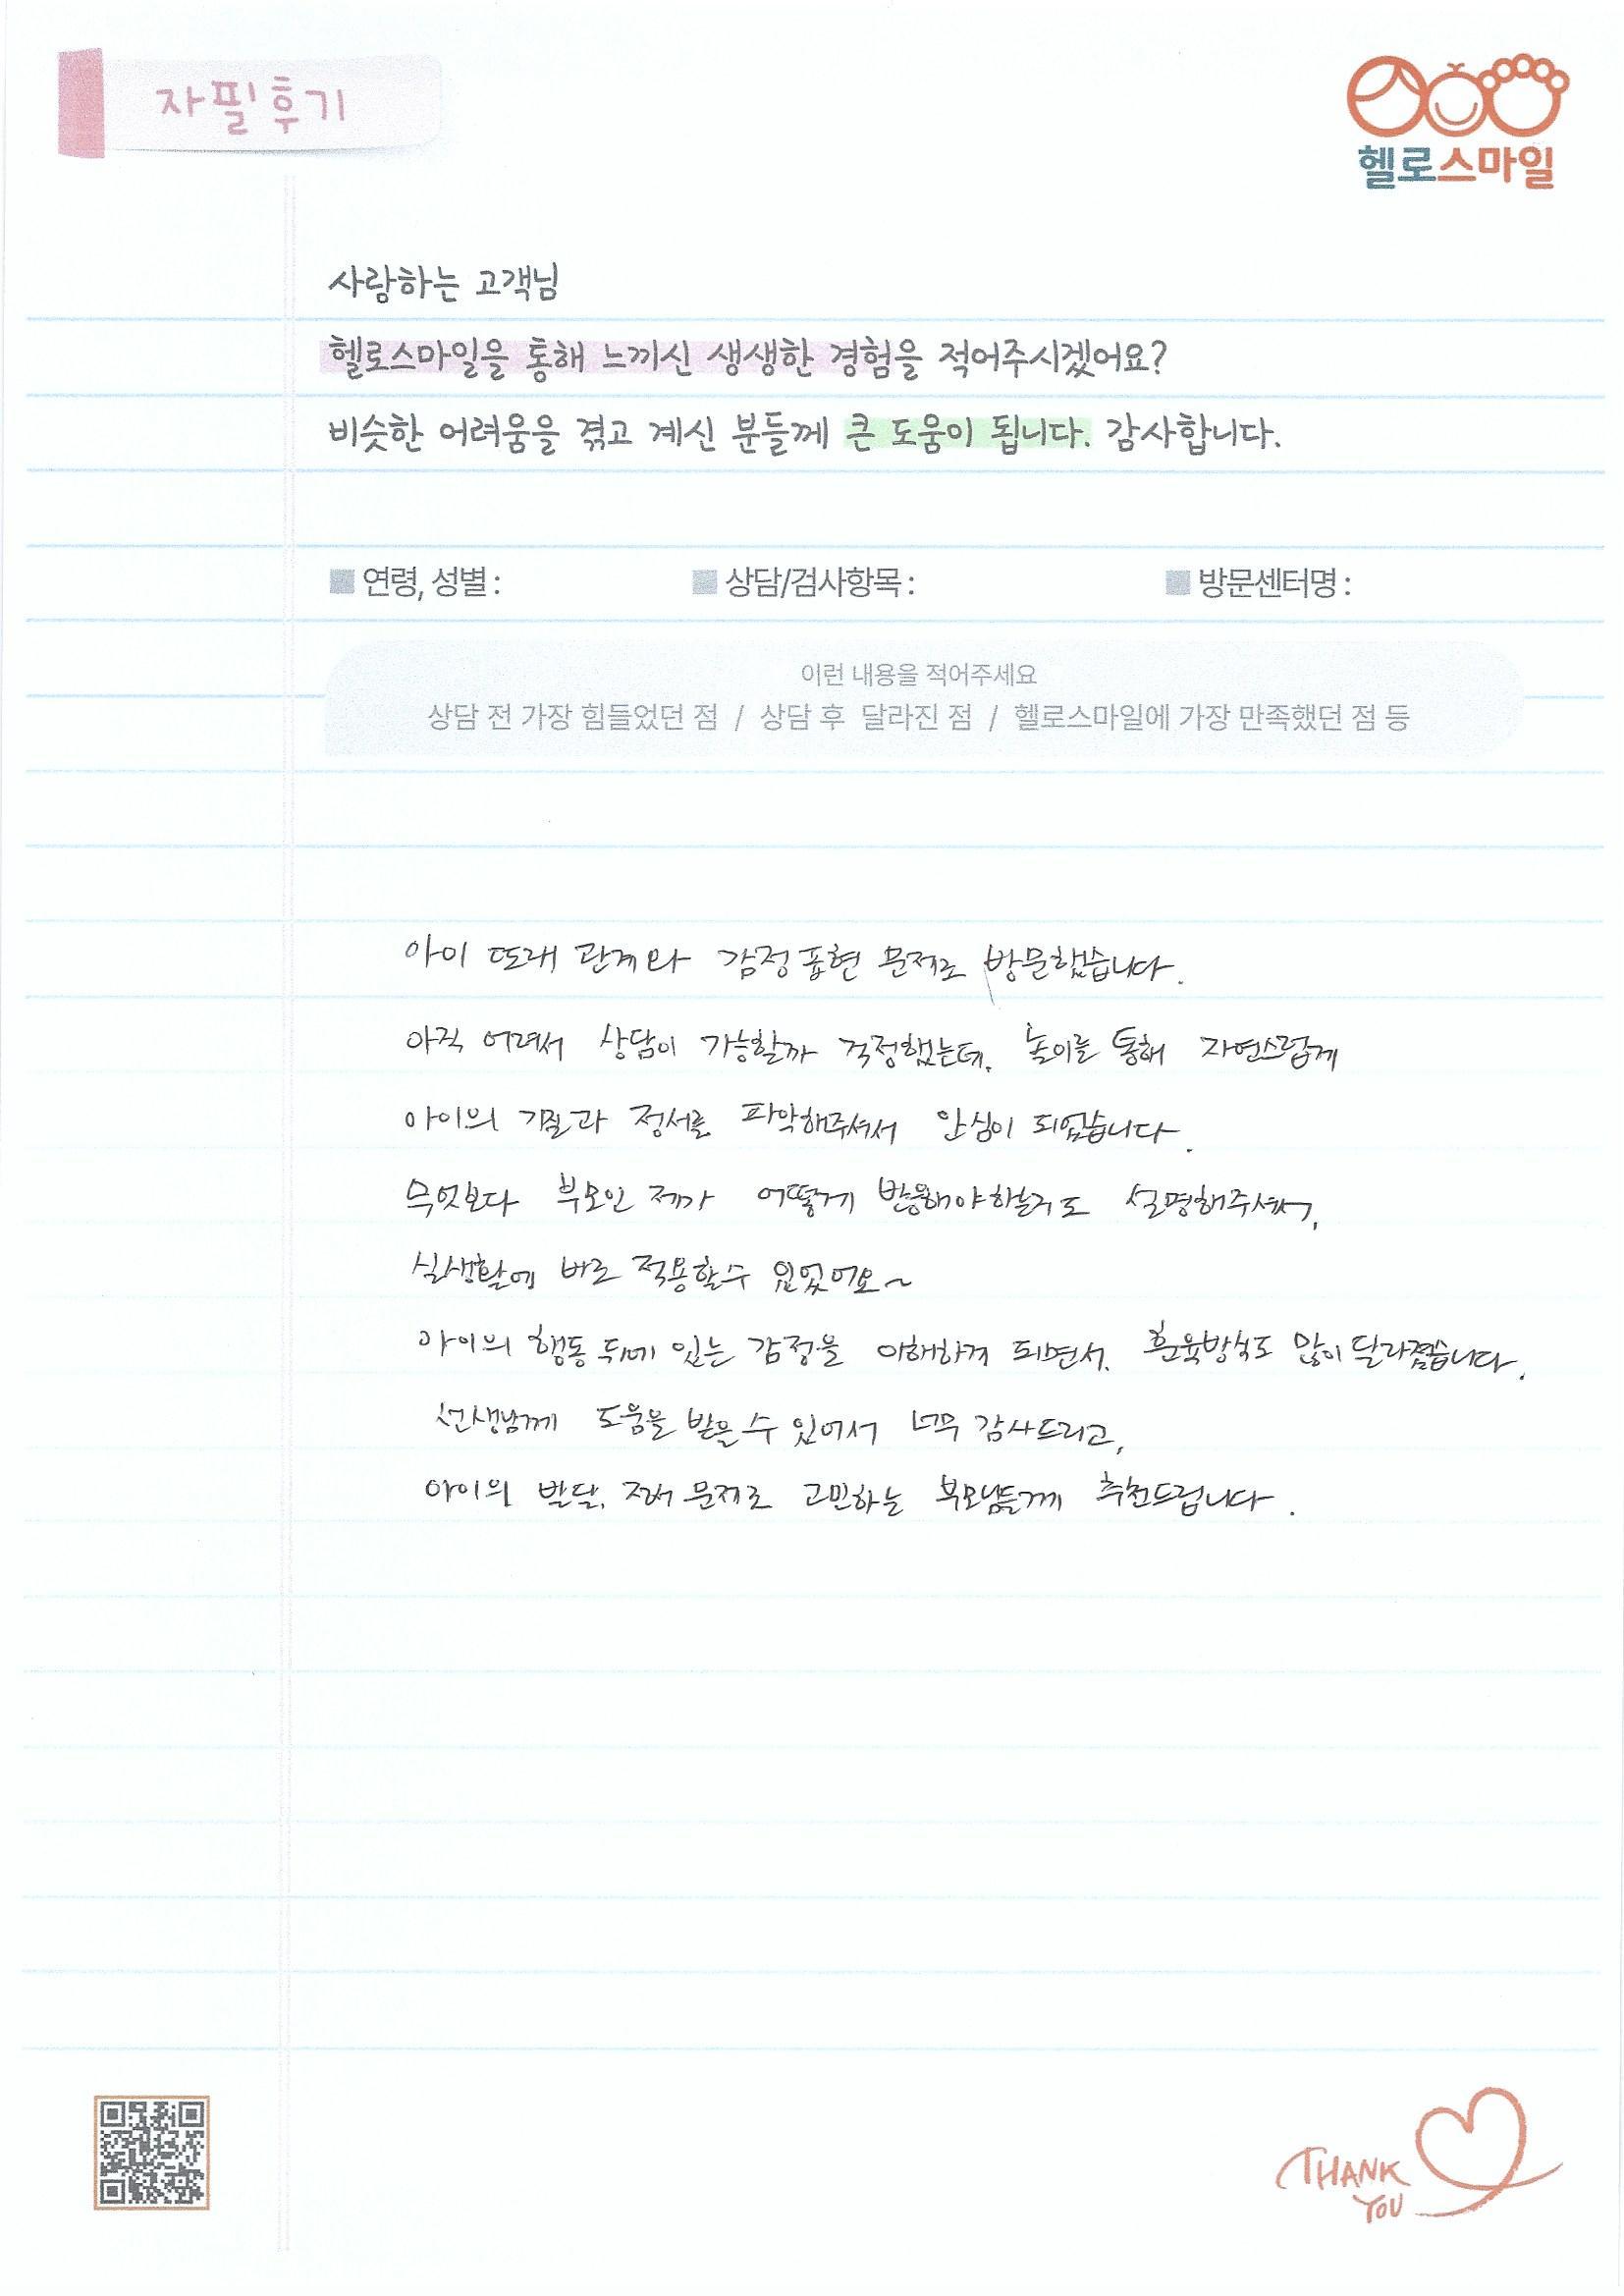 자필후기
헬로스마일
사랑하는 고객님
헬로스마일을 통해 느끼신 생생한 경험을 적어주시겠어요?
비슷한 어려움을 겪고 계신 분들께 큰 도움이 됩니다. 감사합니다.
연령, 성별 : 상담/검사항목 : 방문센터명 :
이런 내용을 적어주세요
상담 전 가장 힘들었던 점 / 상담 후 달라진 점 / 헬로스마일에 가장 만족했던 점 등
아이 또래 관계와 감정표현 문제로 방문했습니다.
아직 어려서 상담이 가능할까 걱정했는데, 놀이를 통해 자연스럽게
아이의 기질과 정서를 파악해주셔서 안심이 되었습니다.
무엇보다 부모인 제가 어떻게 반응해야하는지도 설명해주셔서,
실생활에 바로 적용할수 있었어요~
아이의 행동 뒤에 있는 감정을 이해하게 되면서, 훈육방식도 많이 달라졌습니다.
선생님께 도움을 받을 수 있어서 너무 감사드리고,
아이의 발달, 정서 문제로 고민하는 부모님들께 추천드립니다.
THANK
YOU